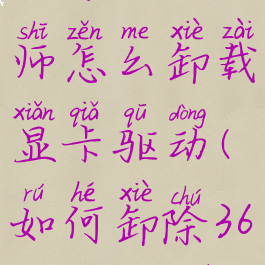 shī zěn me xiè zài
师怎么卸载
xiǎn qiǎ qū dòng
显卡驱动(
rú hé xiè chú
如何卸除36